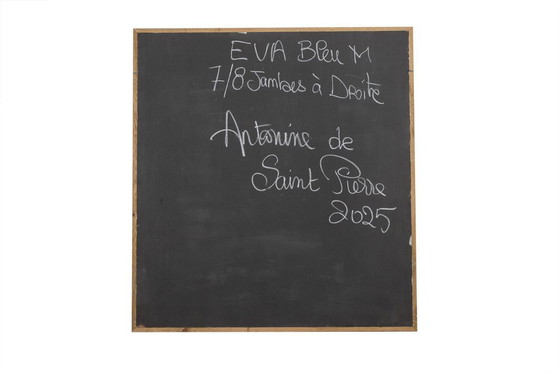 EVA Bleu M
7/8 Jambes à Droite
Antonine de
Saint Pierre
2025